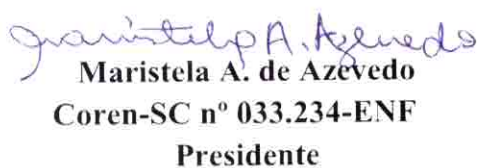 Maristela A. Azevedo
Maristela A. de Azevedo
Coren-SC nº 033.234-ENF
Presidente